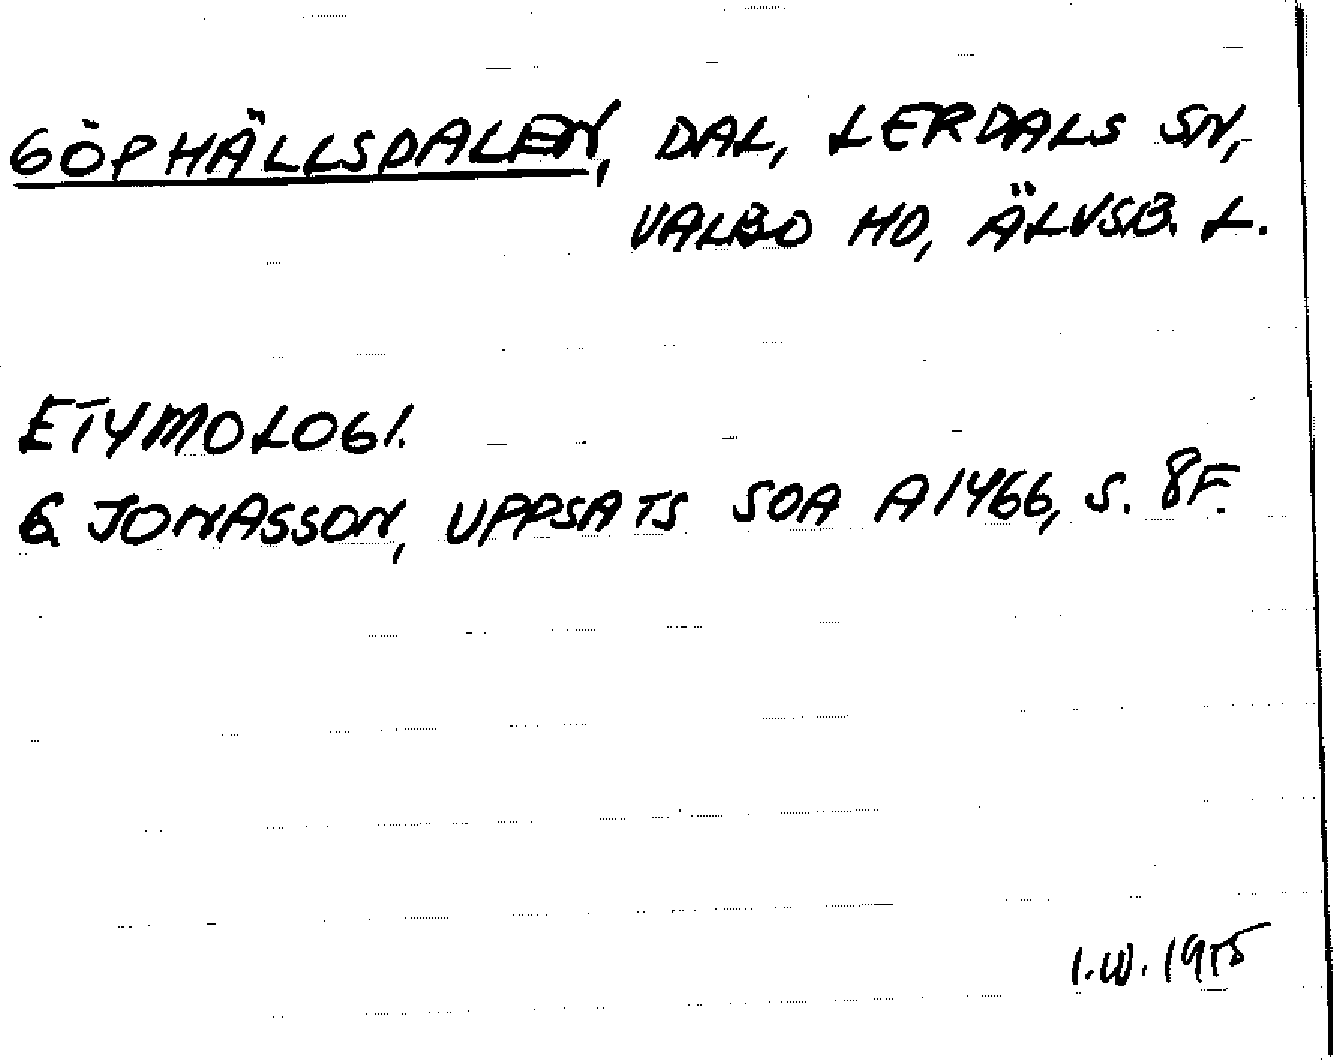 GÖPHÄLLSDALEN, DAL, LERDALS SN,
VALBO HD, ÄLVSB. L.
ETYMOLOGI.
G. JONASSON, UPPSATS SOA A1466, S. 8F.